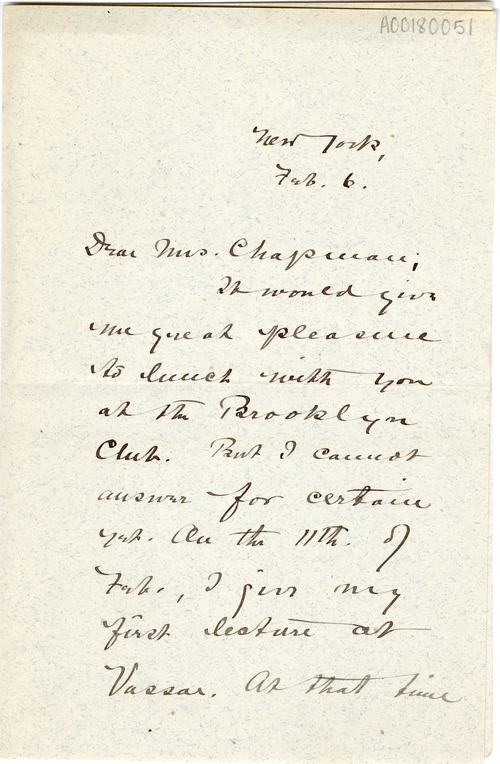 A00180051
New York,
Feb. 6.
Dear Mrs. Chapman;
It would give
me great pleasure
to lunch with you
at the Brooklyn
Club. But I cannot
answer for certain
yet. On the 11th. of
Feb., I give my
first lecture at
Vassar. At that time